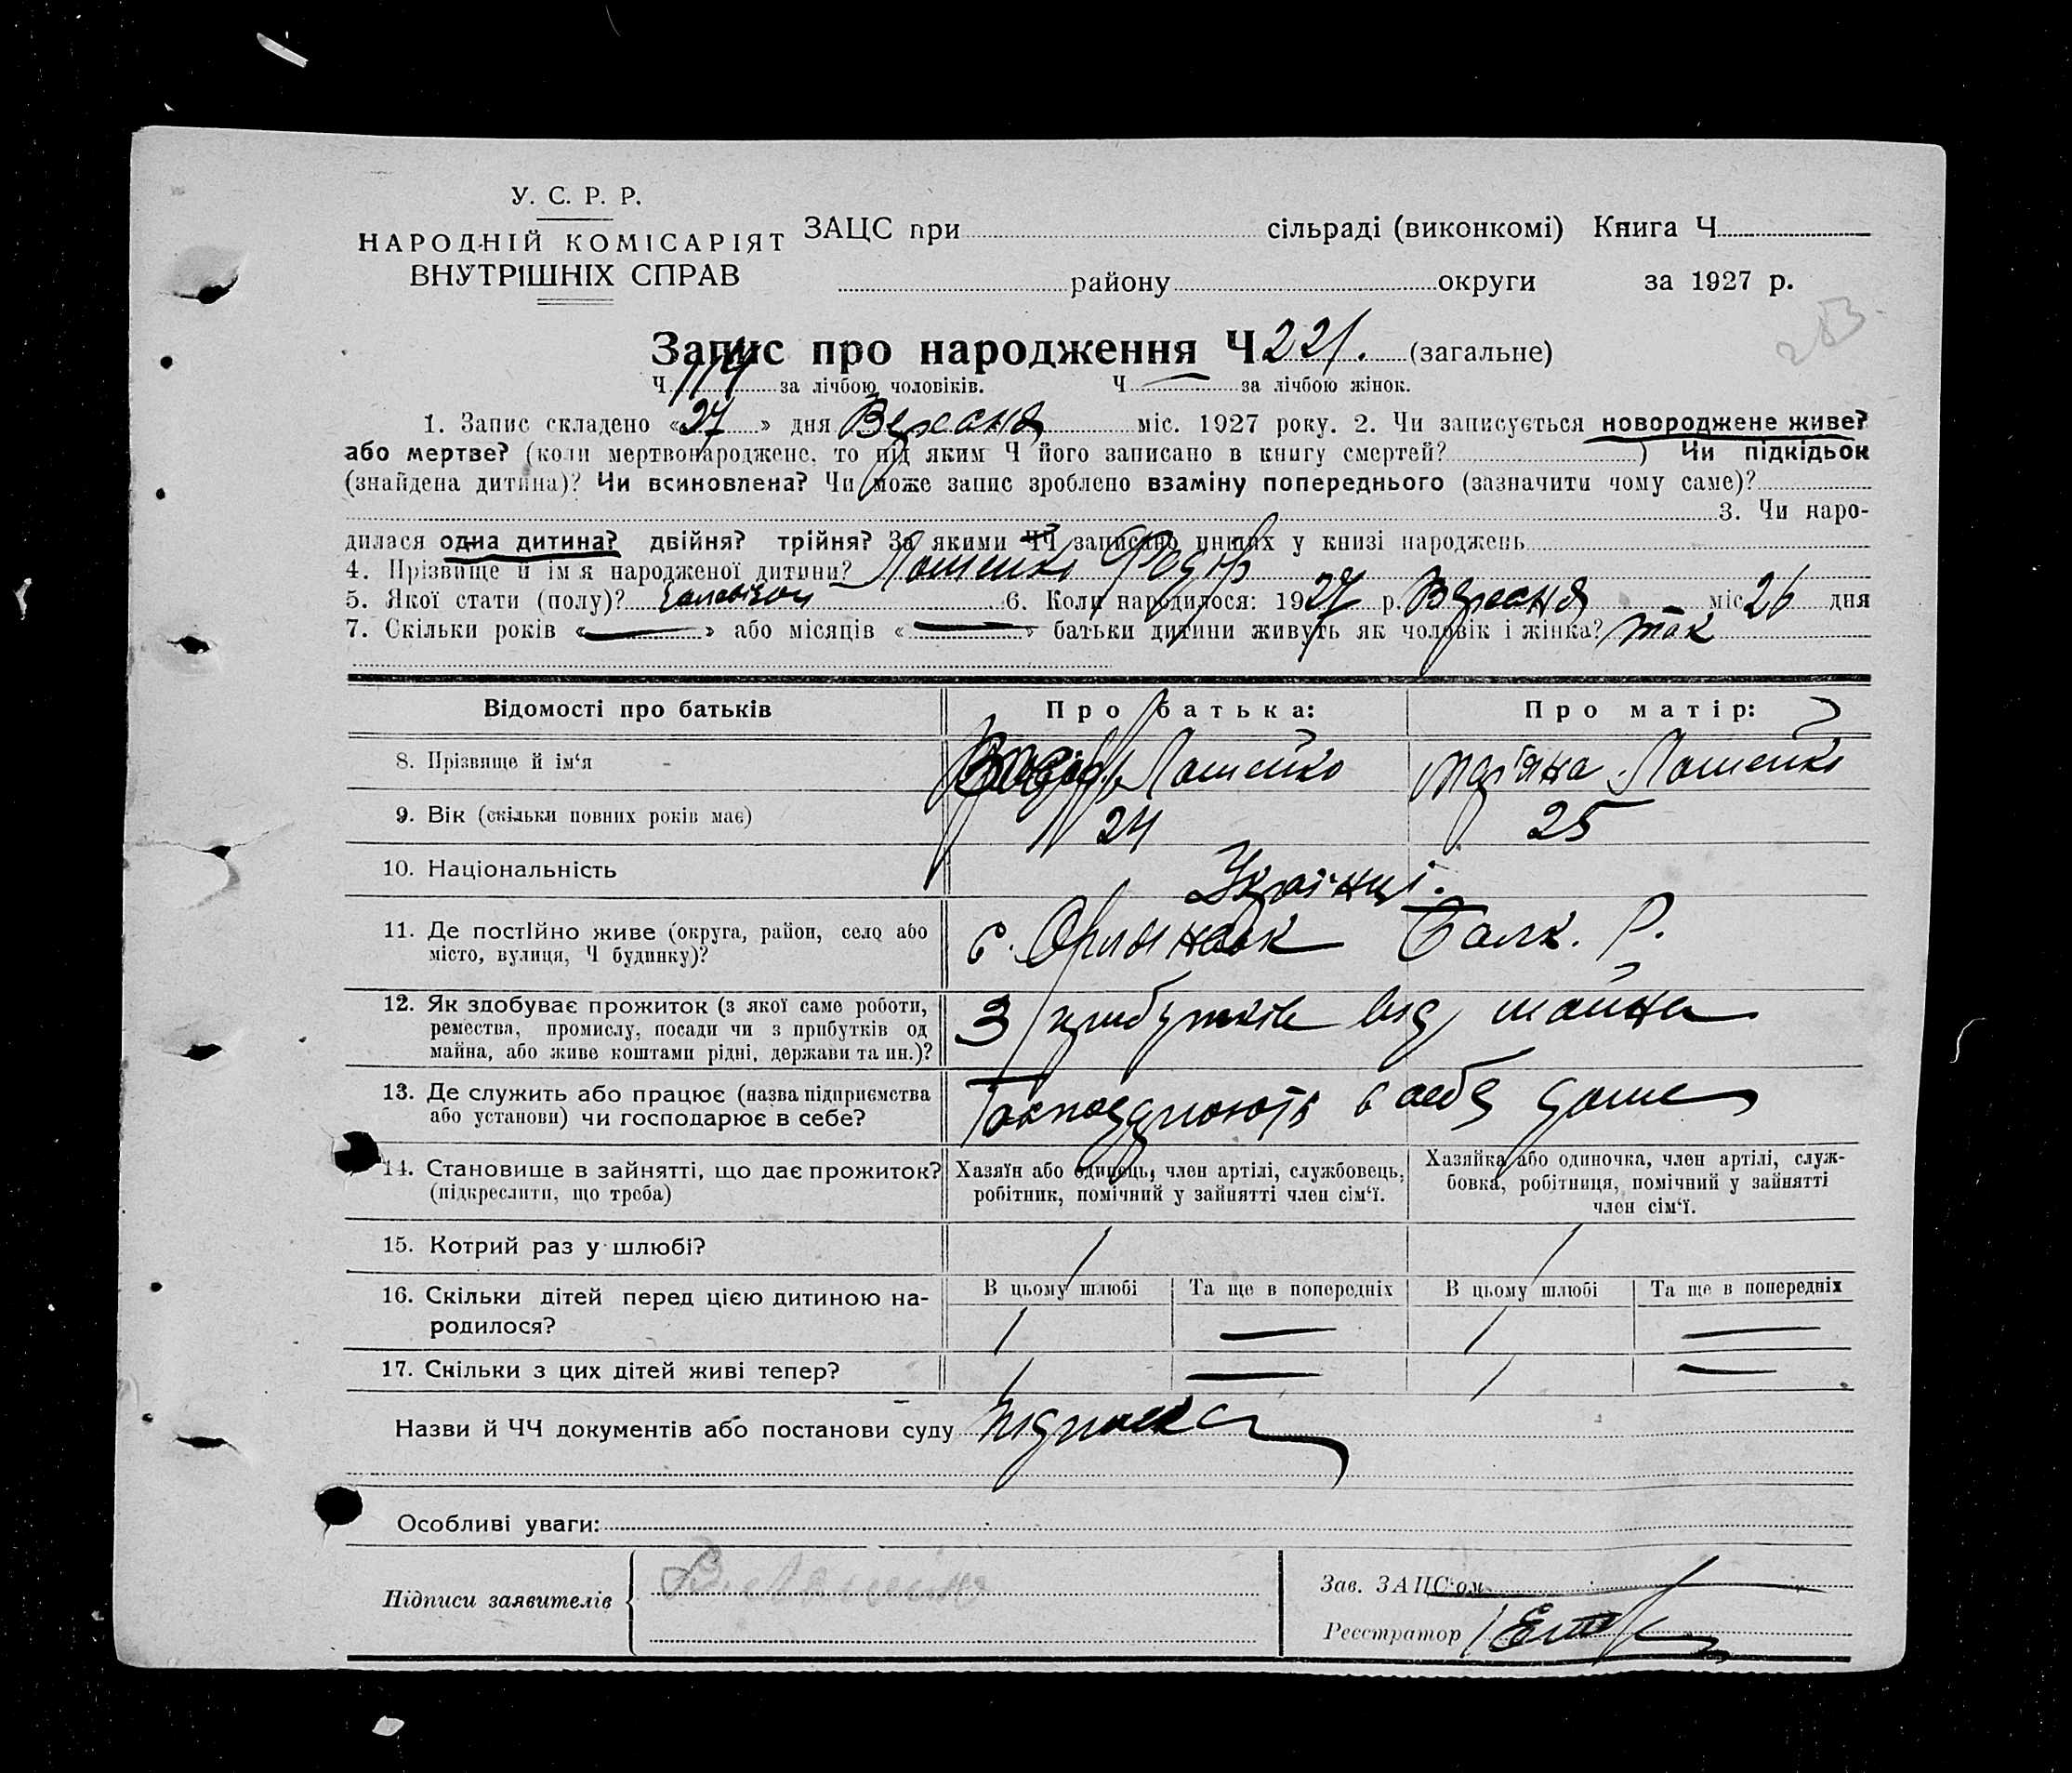 У. С. Р. Р.
НАРОДНІЙ КОМІСАРІЯТ
ВНУТРІШНІХ СПРАВ
ЗАЦС при сільраді (виконкомі) Книга Ч
району округи за 1927 р.
283
Запис про народження Ч 221. (загальне)
Ч 114 за лічбою чоловіків. Ч — за лічбою жінок.
1. Запис складено «27» дня Вересня міс. 1927 року. 2. Чи записується новороджене живе?
або мертве? (коли мертвонароджене, то під яким Ч його записано в книгу смертей? ) Чи підкідьок
(знайдена дитина)? Чи всиновлена? Чи може запис зроблено взаміну попереднього (зазначити чому саме)?
3. Чи наро-
дилася одна дитина? двійня? трійня? За якими ЧЧ записано инших у книзі народжень
4. Прізвище й ім'я народженої дитини? Лошенко Федір
5. Якої стати (полу)? 6. Коли народилося: 1927 р. Вересня міс 26 дня
7. Скільки років «—» або місяців «—» батьки дитини живуть як чоловік і жінка? так
Відомості про батьків Про батька: Про матір:
8. Прізвище й ім'я Лошенко Лошенко
9. Вік (скільки повних років має) 24 25
10. Національність Українці.
11. Де постійно живе (округа, район, село або
місто, вулиця, Ч будинку)?
с. Балк. Р.
12. Як здобуває прожиток (з якої саме роботи,
ремества, промислу, посади чи з прибутків од
майна, або живе коштами рідні, держави та ин.)?
З прибутків від майна
13. Де служить або працює (назва підприємства
або установи) чи господарює в себе?
в себе дома
14. Становище в зайнятті, що дає прожиток?
(підкреслити, що треба)
Хазяїн або одинець, член артілі, службовець,
робітник, помічний у зайнятті член сім'ї.
Хазяйка або одиночка, член артілі, служ-
бовка, робітниця, помічний у зайнятті
член сім'ї.
15. Котрий раз у шлюбі? 1 1
16. Скільки дітей перед цією дитиною на-
родилося?
В цьому шлюбі Та ще в попередніх В цьому шлюбі Та ще в попередніх
1 — 1 —
17. Скільки з цих дітей живі тепер? 1 — 1 —
Назви й ЧЧ документів або постанови суду
Особливі уваги:
Підписи заявителів
Зав. ЗАЦС'ом
Реєстратор